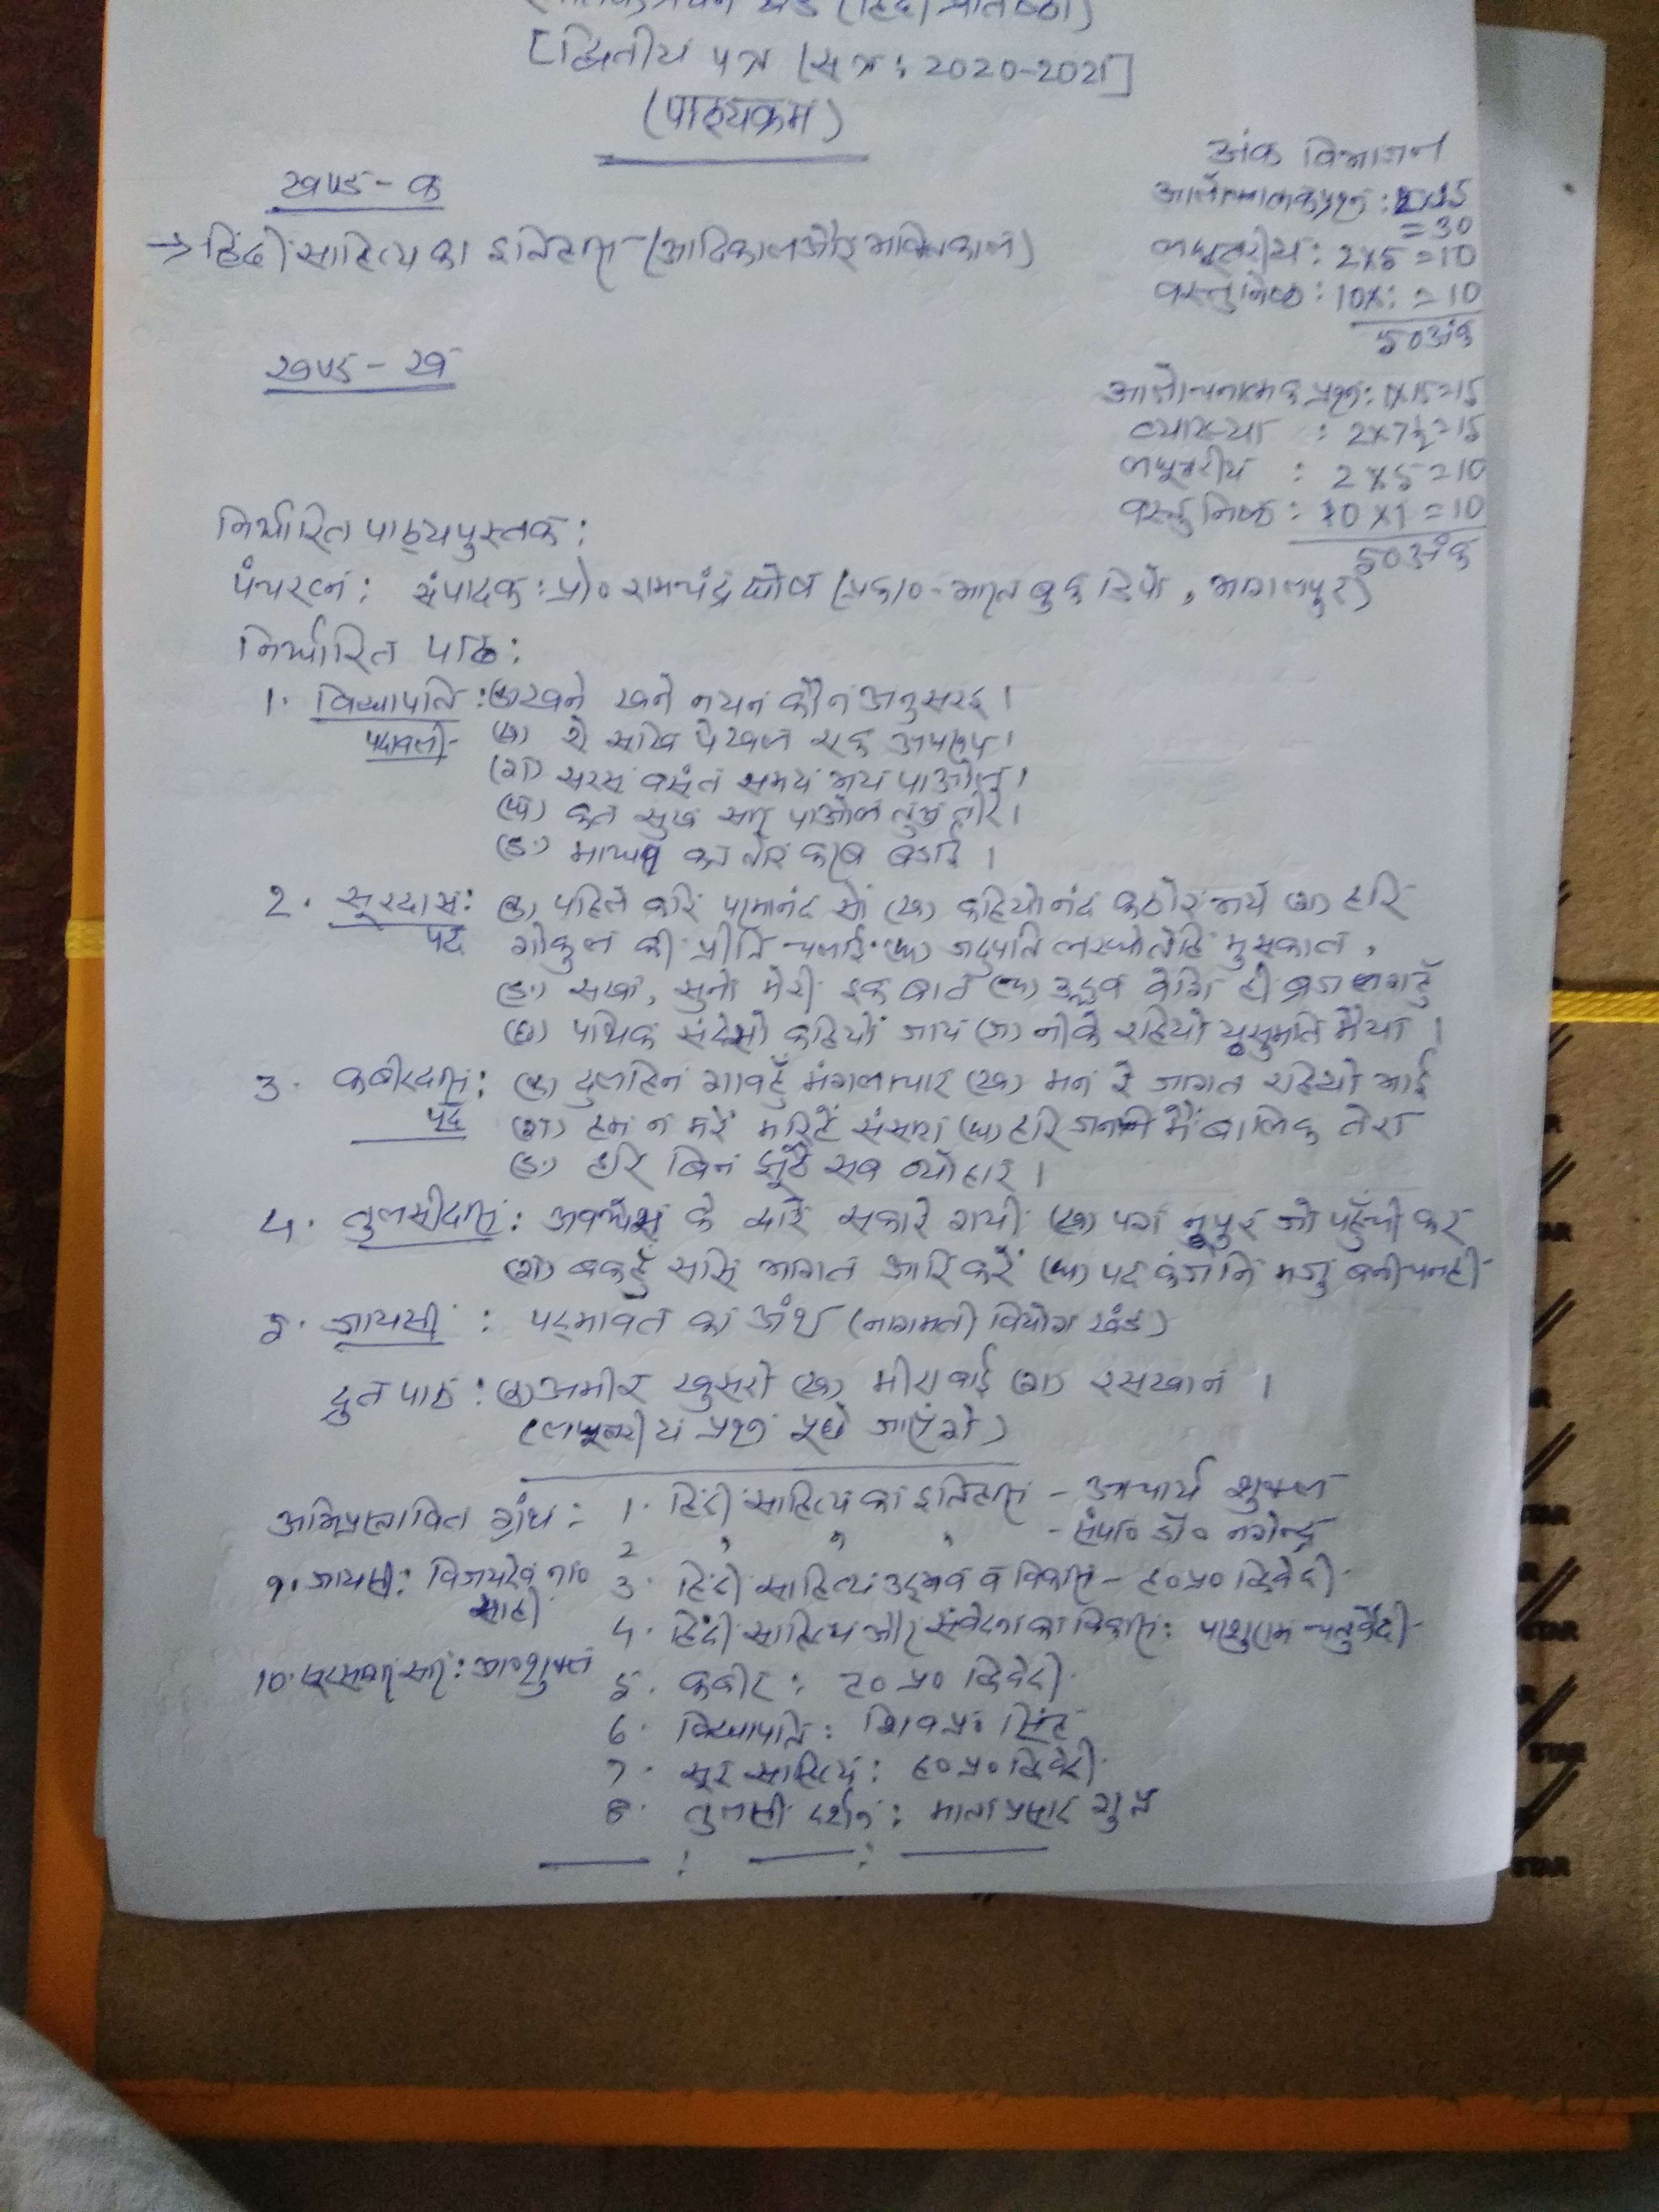 [द्वितीय पत्र (सत्र : 2020-2021]
(पाठ्यक्रम)
खण्ड - क
→ हिंदी साहित्य का इतिहास - (आदिकाल और भक्तिकाल)
अंक विभाजन
आलोचनात्मक प्रश्न : 2x15
= 30
लघूत्तरीय : 2x5 = 10
वस्तुनिष्ठ : 10x1 = 10
50 अंक
खण्ड - ख
आलोचनात्मक प्रश्न : 1x15=15
व्याख्या : 2x7½=15
लघूत्तरीय : 2x5=10
वस्तुनिष्ठ : 10x1=10
50 अंक
निर्धारित पाठ्यपुस्तक :
पंचरत्न : संपादक : प्रो० रामचंद्र घोष (प्रका०- भारत बुक डिपो, भागलपुर)
निर्धारित पाठ :
1. विद्यापति : (क) खने खने नयन कोन अनुसरइ ।
पदावली- (ख) ए सखि पेखल एक अपरूप ।
(ग) सरस वसंत समय भय पाओलि ।
(घ) कत सुख सार पाओल तुअ तीरे ।
(ङ) माधव कत तोर करब बड़ाई ।
2. सूरदास : (क) पहिले करि परमानंद सों (ख) कहियो नंद कठोर भये (ग) हरि
पद गोकुल की प्रीति चलाई (घ) जदुपति लख्यो तेहि मुसकात,
(ङ) सखा, सुनो मेरी इक बात (च) उद्धव बेगि ही ब्रज जाहुँ
(छ) पथिक संदेसो कहियो जाय (ज) नीके रहियो यसुमति मैया ।
3. कबीरदास : (क) दुलहिन गावहुँ मंगलचार (ख) मन रे जागत रहियो भाई
पद (ग) हम न मरैं मरिहैं संसारा (घ) हरि जननी मैं बालिक तेरा
(ङ) हरि बिन झूठे सब व्योहार ।
4. तुलसीदास : अवधेस के द्वारे सकारे गयी (ख) पग नूपुर औ पहुँची कर
(ग) कबहुँ ससि मागत आरि करैं (घ) पद कंजनि मंजु बनी पनही
5. जायसी : पद्मावत का अंश (नागमती वियोग खंड)
द्रुत पाठ : (क) अमीर खुसरो (ख) मीराबाई (ग) रसखान ।
(लघूत्तरीय प्रश्न पूछे जाएंगे)
अभिप्रस्तावित ग्रंथ : 1. हिंदी साहित्य का इतिहास - आचार्य शुक्ल
2 " " " - संपा० डॉ० नगेन्द्र
3. हिंदी साहित्य उद्भव व विकास - ह० प्र० द्विवेदी
4. हिंदी साहित्य और संवेदना का विकास : परशुराम चतुर्वेदी
5. कबीर : ह० प्र० द्विवेदी
6. विद्यापति : शिव प्र० सिंह
7. सूर साहित्य : ह० प्र० द्विवेदी
8. तुलसी दर्शन : माता प्रसाद गुप्त
9. जायसी : विजयदेव ना०
साही